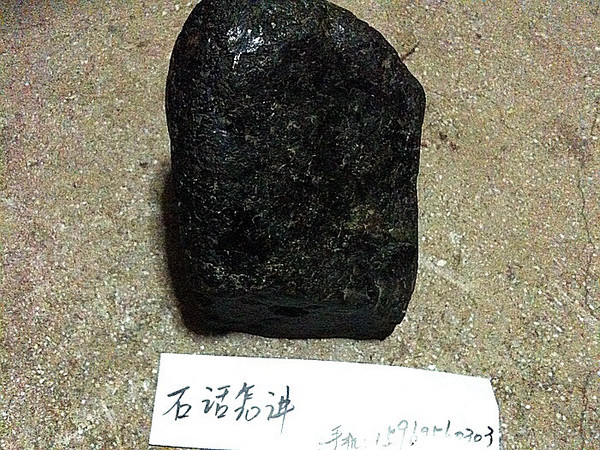 石话怎讲
手机:15969560303